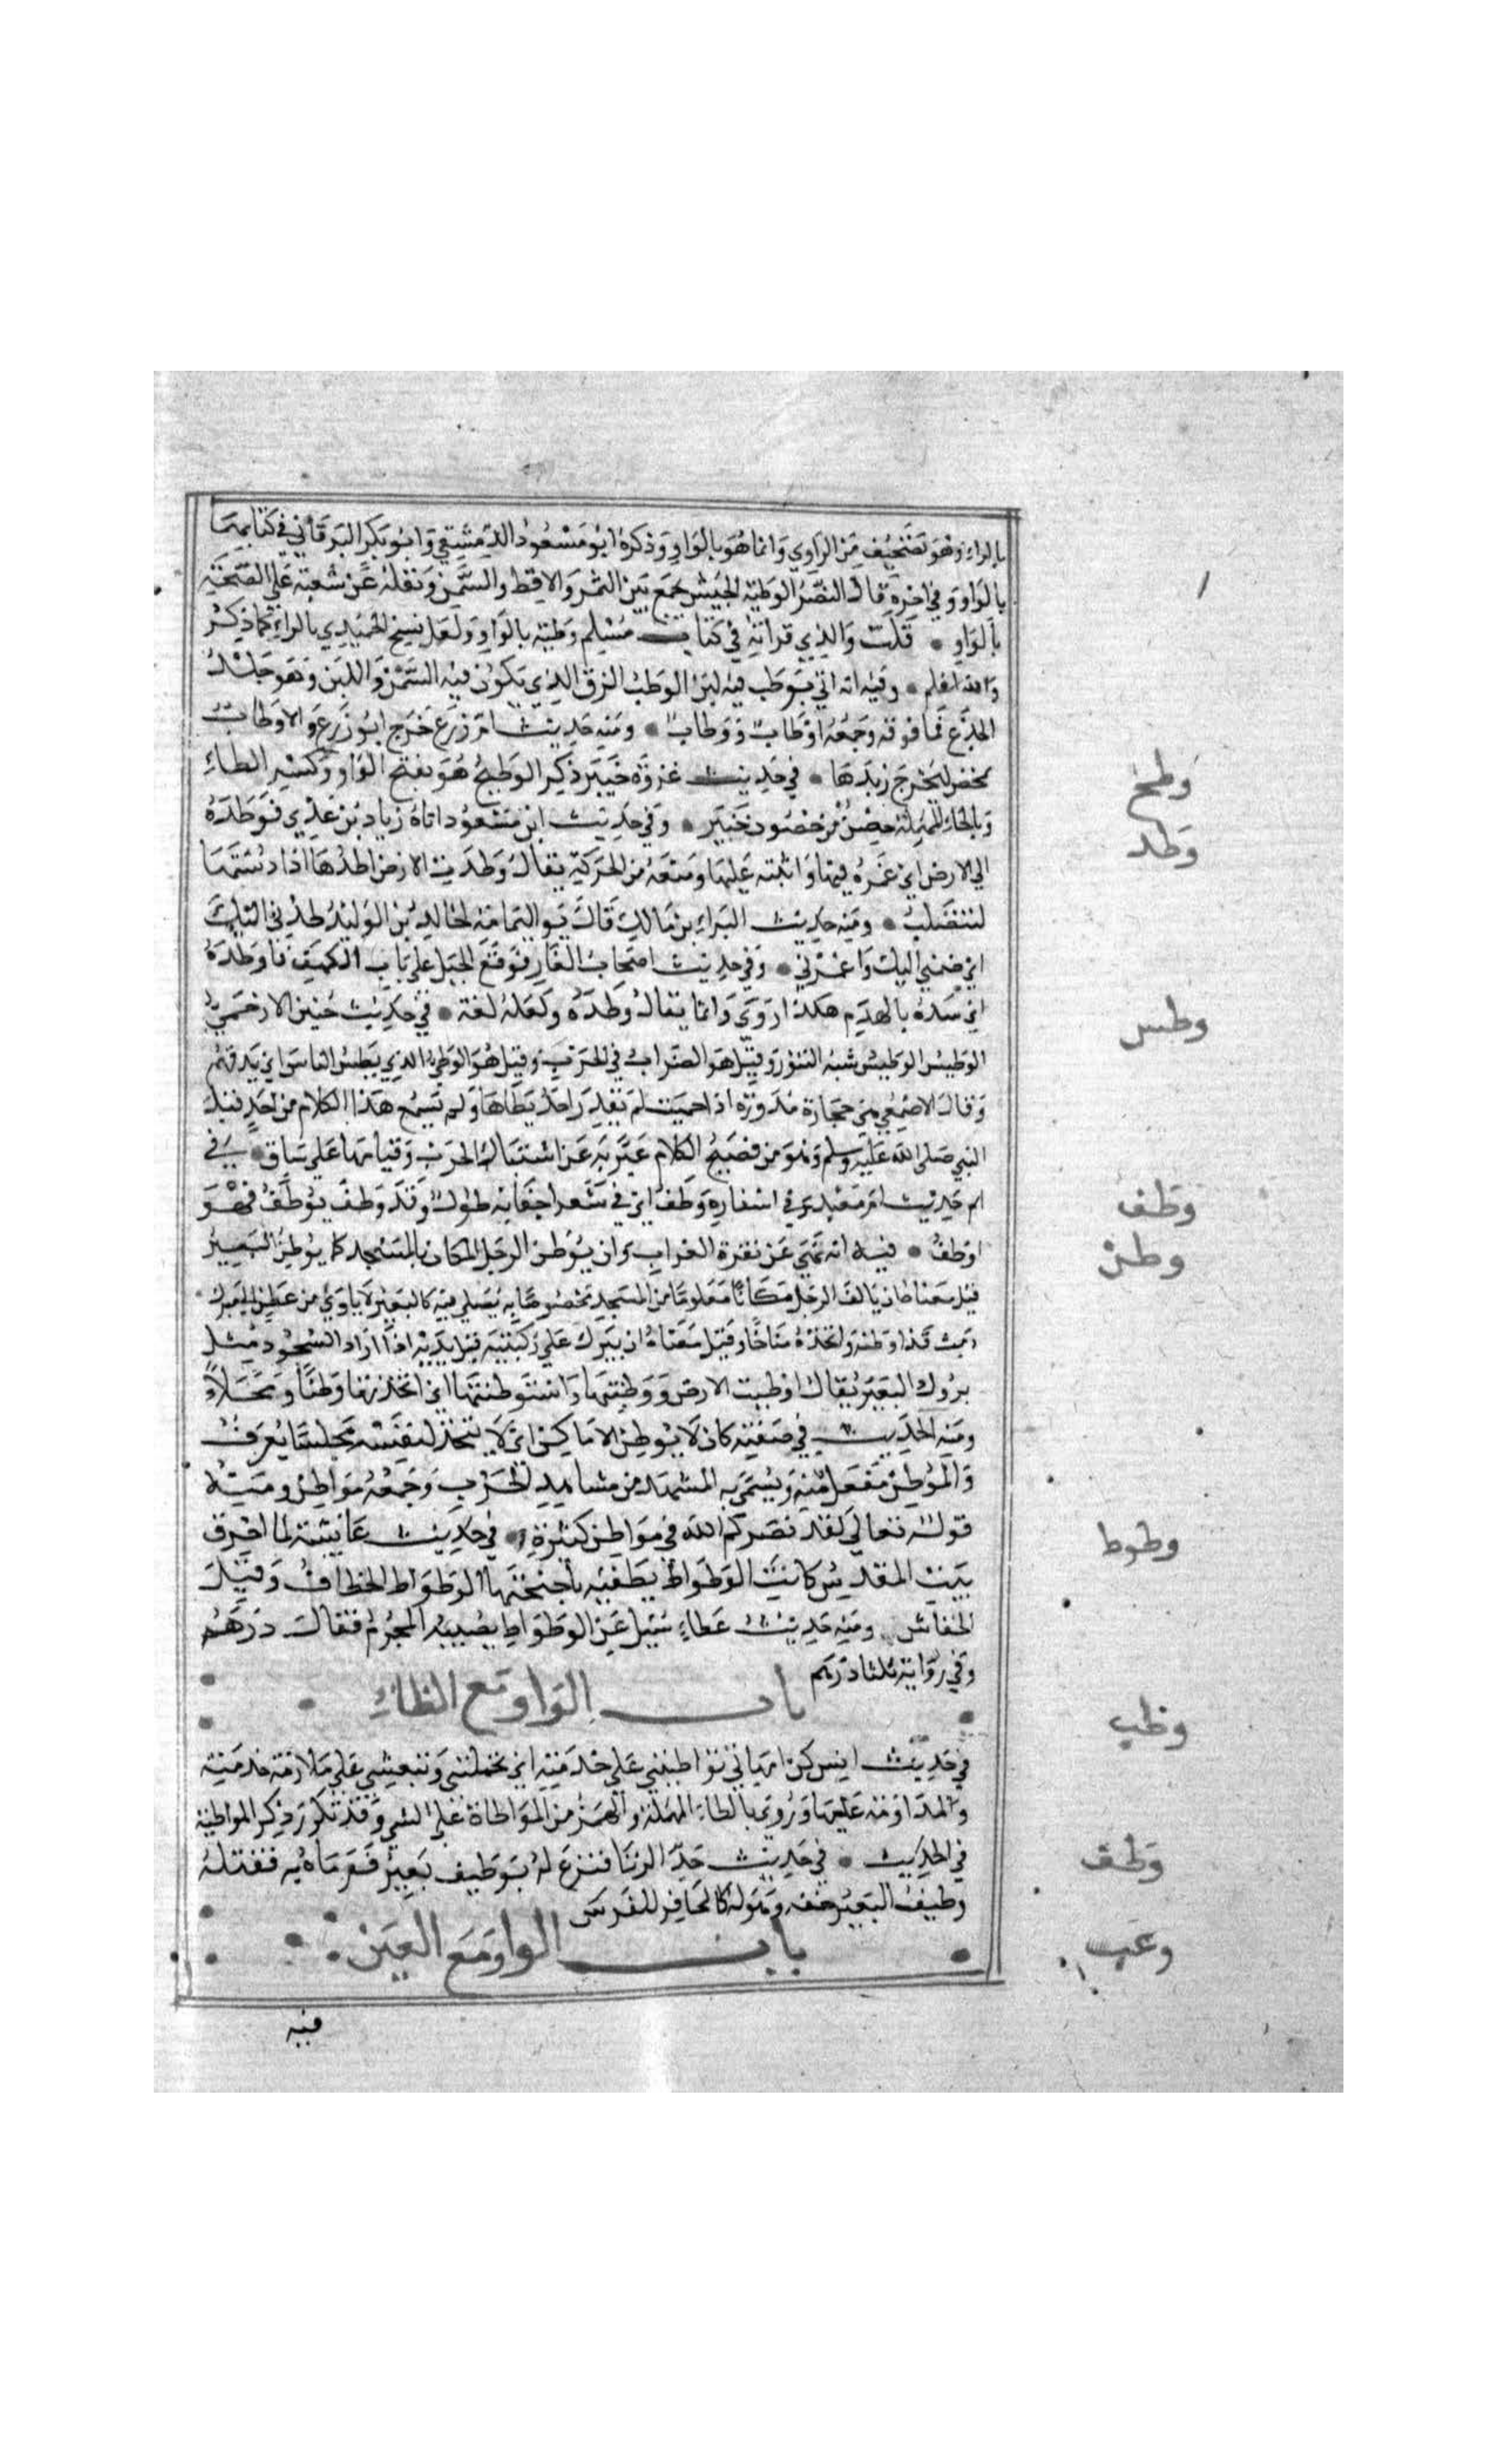 بالراء وهو تصحيف من الراوي وانما هو بالواو وذكره ابو مسعود الدمشقي وابو بكر البرقاني في كتابيهما
بالواو وفي اخره قال النضر الوطية الحيس يجمع بين التمر والاقط والسمن ونقله عن شعبة على الصحة
بالواو • قلت والذي قراته في كتاب مسلم وطية بالواو ولعل نسخ الحميدي بالراء كما ذكر
والله اعلم • وفيه انه اتي بوطب فيه لبن الوطب الزق الذي يكون فيه السمن واللبن وهو جلد
الجذع فما فوقه وجمعه اوطاب ووطاب • ومنه حديث ام زرع خرج ابو زرع والاوطاب
تمخض ليخرج زبدها • في حديث غزوة خيبر ذكر الوطيح هو بفتح الواو وكسر الطاء
وطح
وبالحاء المهملة حصن من حصون خيبر • وفي حديث ابن مسعود اتاه زياد بن عدي فوطده
وطد
الي الارض اي غمزه فيها واثبته عليها ومنعه من الحركة يقال وطدت الارض اطدها اذا دستها
لتتصلب • ومنه حديث البراء بن مالك قال يوم اليمامة لخالد بن الوليد طدني اليك
اي ضمني اليك واغمزني • وفي حديث اصحاب الغار فوقع الجبل على باب الكهف فاوطده
اي سده بالهدم هكذا روي وانما يقال وطده ولعله لغة • في حديث حنين الان حمي
وطس
الوطيس الوطيس شبه التنور وقيل هو الضراب في الحرب وقيل هو الوطء الذي يطس الناس اي يدقهم
وقال الاصمعي هي حجارة مدورة اذا حميت لم يقدر احد يطاها ولم يسمع هذا الكلام من احد قبل
النبي صلى الله عليه وسلم وهو من فصيح الكلام عبر به عن اشتباك الحرب وقيامها على ساق • في
حديث ام معبد وفي اشفاره وطف اي في شعر اجفانه طول وقد وطف يوطف فهو
وطف
اوطف • فيه انه نهي عن نقرة الغراب وان يوطن الرجل المكان بالمسجد كما يوطن البعير
وطن
قيل معناه ان يالف الرجل مكانا معلوما من المسجد مخصوصا به يصلي فيه كالبعير لا ياوي من عطن الا مبرك
دمث قد اوطنه واتخذه مناخا وقيل معناه ان يبرك على ركبتيه قبل يديه اذا اراد السجود مثل
بروك البعير يقال اوطنت الارض ووطنتها واستوطنتها اي اتخذتها وطنا ومحلا
ومنه الحديث في صفته كان لا يوطن الاماكن اي لا يتخذ لنفسه مجلسا يعرف
والموطن مفعل منه ويسمى به المشهد من مشاهد الحرب وجمعه مواطن ومنه
قوله تعالي لقد نصركم الله في مواطن كثيرة • في حديث عائشة لما احرق
وطوط
بيت المقدس كانت الوطواط تطفيه باجنحتها الوطواط الخطاف وقيل
الخفاش ومنه حديث عطاء سئل عن الوطواط يصيبه المحرم فقال درهم
وفي رواية ثلثا درهم
باب الواو مع الظاء
وظب
في حديث انس كن امهاتي تواظبنني على خدمته اي تحملنني وتبعثني على ملازمة خدمته
والمداومة عليها وروي بالطاء المهملة والهمز من المواطاة على الشي وقد تكرر ذكر المواظبة
في الحديث • في حديث حد الزنا فنزع له بوظيف بعير فرماه به فقتله
وظف
وظيف البعير خفه وهو له كالحافر للفرس
باب الواو مع العين
وعب
فيه